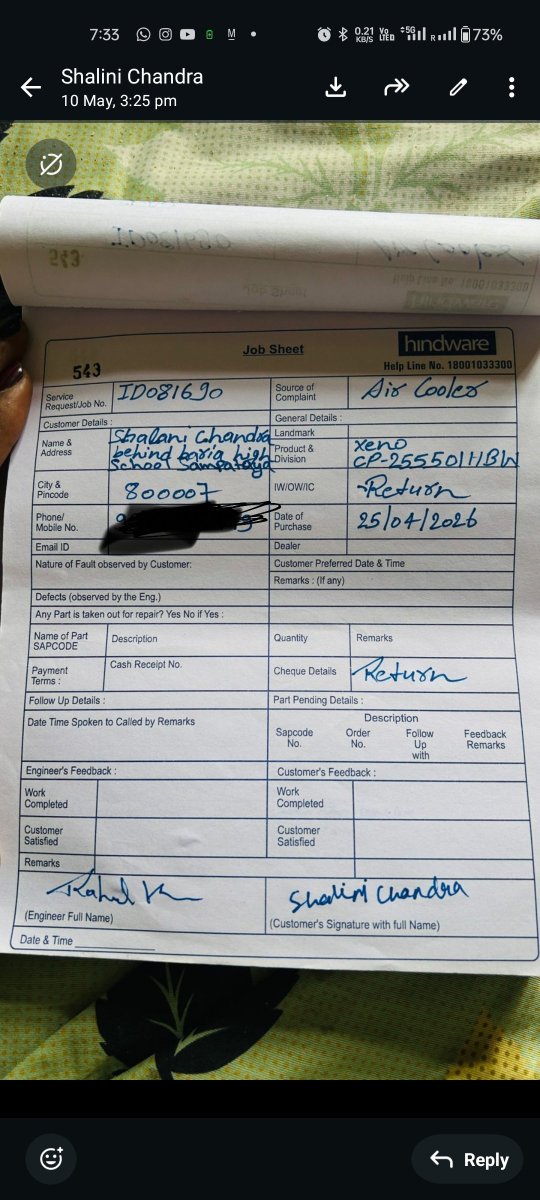 7:33 M 0.21 KB/S Vo LTE 5G R 73%
Shalini Chandra
10 May, 3:25 pm
543
Help Line No. 18001033300
Job Sheet
543
Job Sheet
hindware
Help Line No. 18001033300
Service Request/Job No. ID081690
Source of Complaint Air Cooler
Customer Details :
General Details :
Name & Address
Shalani Chandra
behind baria high
School Sampatchya
Landmark
Product & Division
xeno
CP-255501HBW
City & Pincode 800007
IW/OW/IC Return
Phone/ Mobile No.
Date of Purchase 25/04/2026
Email ID
Dealer
Nature of Fault observed by Customer:
Customer Preferred Date & Time
Remarks : (If any)
Defects (observed by the Eng.)
Any Part is taken out for repair? Yes No if Yes :
Name of Part SAPCODE
Description
Quantity
Remarks
Payment Terms :
Cash Receipt No.
Cheque Details
Return
Follow Up Details :
Part Pending Details :
Date Time Spoken to Called by Remarks
Description
Sapcode No.
Order No.
Follow Up with
Feedback Remarks
Engineer's Feedback :
Customer's Feedback :
Work Completed
Work Completed
Customer Satisfied
Customer Satisfied
Remarks
Shalini Chandra
(Engineer Full Name)
(Customer's Signature with full Name)
Date & Time
Reply